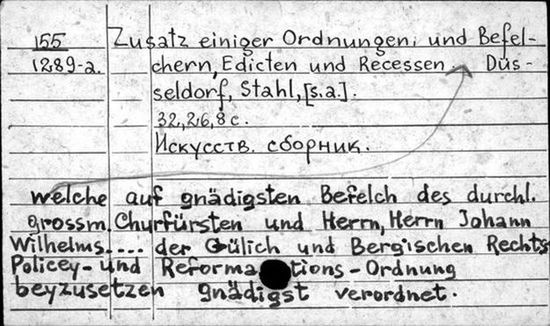 155 Zusatz einiger Ordnungen, und Befel-
1289-a. chern, Edicten und Recessen Düs-
seldorf, Stahl, [s.a.].
32, 216, 8 с.
Искусств. сборник.
welche auf gnädigsten Befelch des durchl.
grossm. Churfürsten und Herrn, Herrn Johann
Wilhelms.... der Gülich und Bergischen Rechts
Policey- und Reformations-Ordnung
beyzusetzen gnädigst verordnet.